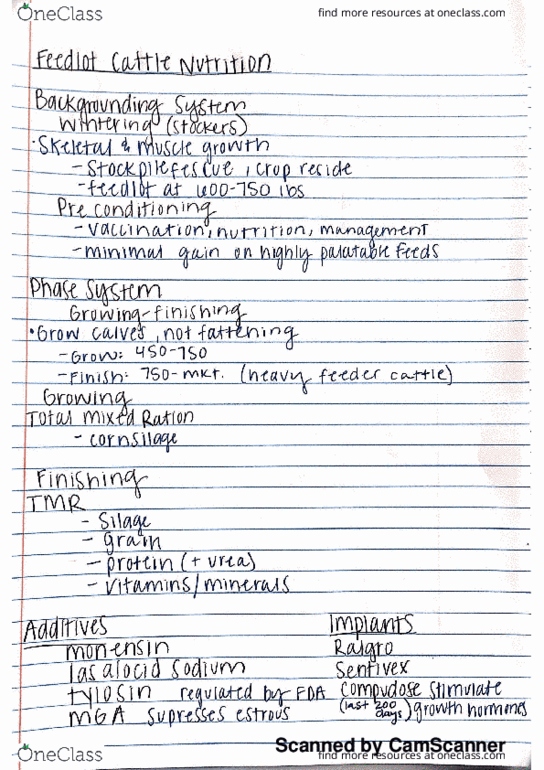 OneClass
find more resources at oneclass.com
Feedlot Cattle Nutrition
Backgrounding System
Wintering (stockers)
· Skeletal & muscle growth
- Stockpile fescue, crop reside
- feedlot at 600-750 lbs
Pre conditioning
- vaccination, nutrition, management
- minimal gain on highly palatable feeds
Phase System
Growing-finishing
• Grow calves, not fattening
- Grow: 450-750
- Finish: 750-mkt. (heavy feeder cattle)
Growing
Total Mixed Ration
- cornsilage
Finishing
TMR
- Silage
- grain
- protein (+ urea)
- vitamins/minerals
Additives Implants
monensin Ralgro
lasalocid sodium Sentivex
tylosin regulated by FDA Compudose stimulate
MGA supresses estrous (last 200 days) growth hormones
Scanned by CamScanner
OneClass
find more resources at oneclass.com